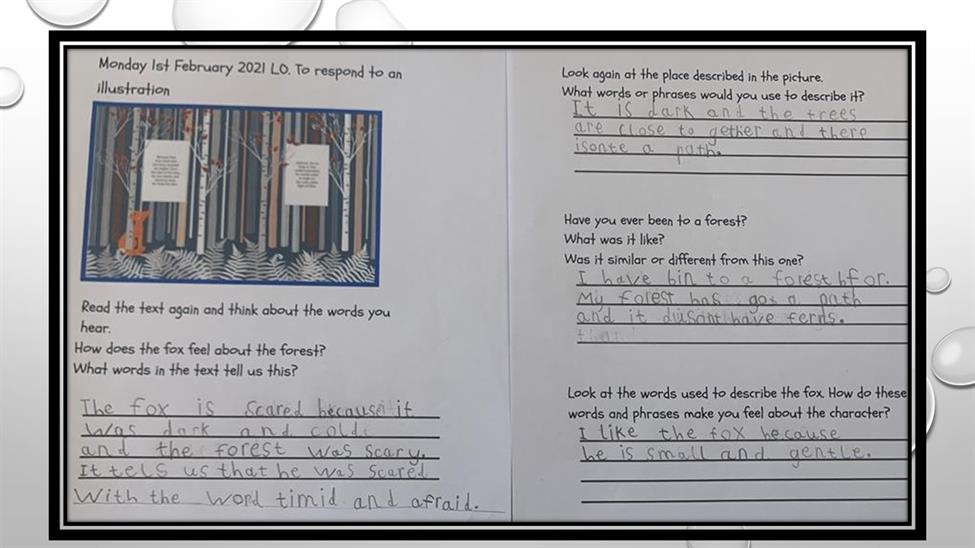 Monday 1st February 2021 LO. To respond to an
illustration
Read the text again and think about the words you
hear.
How does the fox feel about the forest?
What words in the text tell us this?
The fox is scared because it
was dark and cold
and the forest was scary.
It tells us that he was scared
with the word timid and afraid.
Look again at the place described in the picture.
What words or phrases would you use to describe it?
It is dark and the trees
are close to gether and there
isonte a path.
Have you ever been to a forest?
What was it like?
Was it similar or different from this one?
I have bin to a forest bfor.
My forest has got a path
and it dusont have ferns.
Look at the words used to describe the fox. How do these
words and phrases make you feel about the character?
I like the fox because
he is small and gentle.